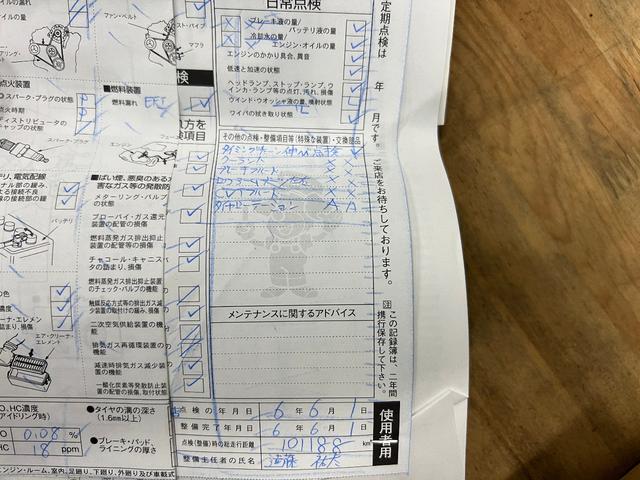 の漏れ
イルの量
ファン・ベルト
点火装置
スパーク・プラグの状態
点火時期
ディストリビュータの
キャップの状態
スパーク・プラグ
リ,電気配線
ナル部の緩み,
よる接続不良
線の接続部の緩
バッテリ
の色
濃度
ーナ・エレメン
詰まり,損傷
エア・クリーナ・
エレメント
O,HC濃度
アイドリング時)
O 0.08 %
HC 18 ppm
マフラ
■燃料装置
燃料漏れ EFI
エンジン
■ばい煙,悪臭のある
害なガス等の発散防
メターリング・バルブ
の状態
ブローバイ・ガス還元
装置の配管の損傷
燃料蒸発ガス排出抑止
装置の配管等の損傷
チャコール・キャニスタ
の詰まり,損傷
燃料蒸発ガス排出抑止装置
のチェック・バルブの機能
触媒反応方式等の排出ガス減少
装置の取付けの緩み,損傷
二次空気供給装置の機
能
排気ガス再循環装置の
機能
減速時排気ガス減少装
置の機能
一酸化炭素等発散防止装置
の配管の損傷,取付状態
●タイヤの溝の深さ
(1.6mm以上)
●ブレーキ・パッド,
ライニングの厚さ
エンジン・ルーム,室内,足廻り,下廻り,外廻り及び車載式
日常点検
ブレーキ液の量
バッテリ液の量
冷却水の量
エンジン・オイルの量
エンジンのかかり具合,異音
低速と加速の状態
ヘッドランプ,ストップ・ランプ,ウ
インカ・ランプ等の点灯,汚れ,損傷
ウインド・ウオッシャ液の量,噴射状態
ワイパの拭き取り状態
その他の点検・整備項目等(特殊な装置)・交換部品
クーラント X X
ブレーキフルード X X
CVTフルード X X
タイヤローテーション A A
メンテナンスに関するアドバイス
点検の年月日 6年6月1日
整備完了年月日 6年6月1日
点検(整備)時の総走行距離 101188 km
整備主任者の氏名
使用者用
定期点検は 年 月です。ご来店をお待ちしております。
注 この記録簿は、二年間
携行保存して下さい。